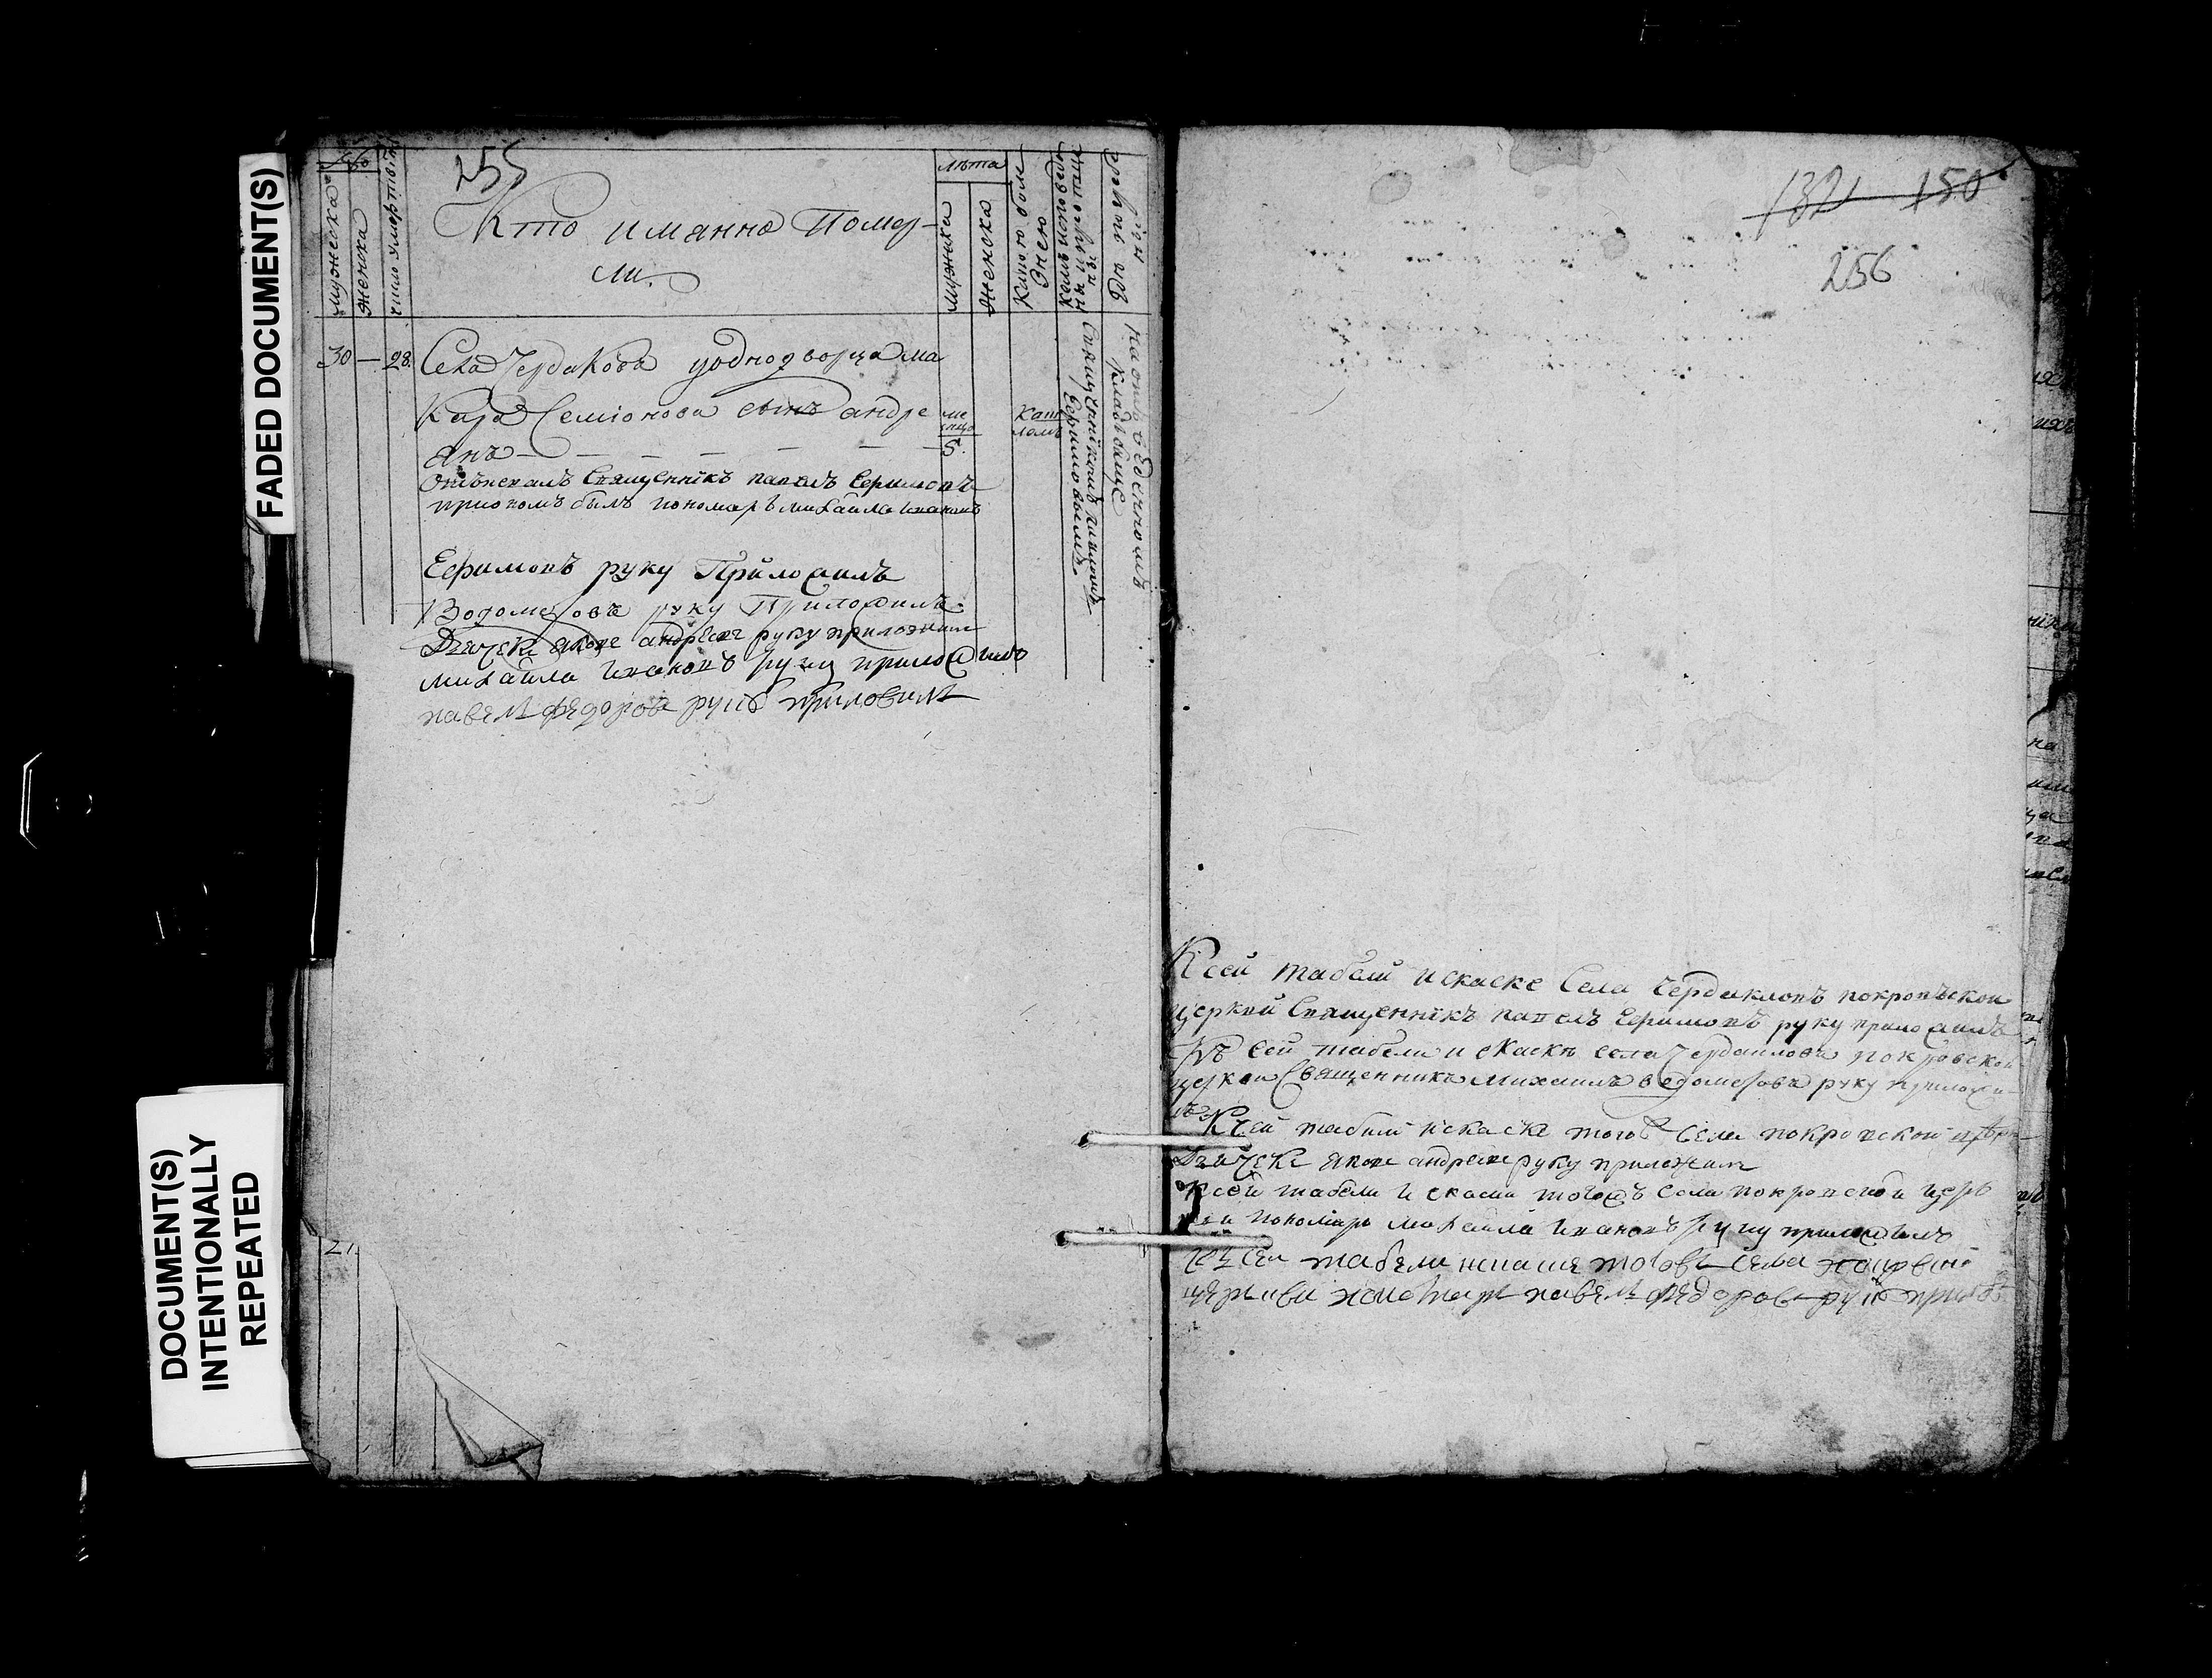 FADED DOCUMENT(S)
DOCUMENT(S)
INTENTIONALLY
REPEATED
255
№
мужеска
женска
число умертвия
Кто имянно Помер-
ли.
лѣта
мужска
женска
Какою боле
знию
кемъ исповеда
ны и
Где и
погребены
30 — 28.
Села Чердаковъ у однодворца ма
кара Семіонова сынъ андре
янъ — — — — — —
ме
сяцо
5.
каш
лемъ
Священнікомъ павломъ
Ефимовымъ.
На отведенномъ
кладбище
Отпѣвалъ Священнікъ павелъ Ефимовъ
при ономъ былъ пономарь михайла ивановъ
Ефимовъ руку Приложилъ
Водомеровъ руку Приложилъ
Дьячекъ яковъ андреевъ руку приложилъ
михайла ивановъ руку приложилъ
павелъ федоровъ руку приложилъ
21
132 150
256
К сей табели и скаске Села Чердакловъ покровской
церкви Священнікъ павелъ Ефимовъ руку приложилъ
Къ сей табели и скаскѣ села Чердаклова покровской
церкви Священникъ Михаилъ водомеровъ руку приложи-
лъ
К сей табели и скаске тогожъ Села покровской церкви
Дьячекъ яковъ андреевъ руку приложилъ
К сей табели и скаски тогожъ села покровской церк
ви пономарь михайла ивановъ руку приложилъ
Къ сей табели тогожъ села
церкви пономарь павелъ федоровъ руку